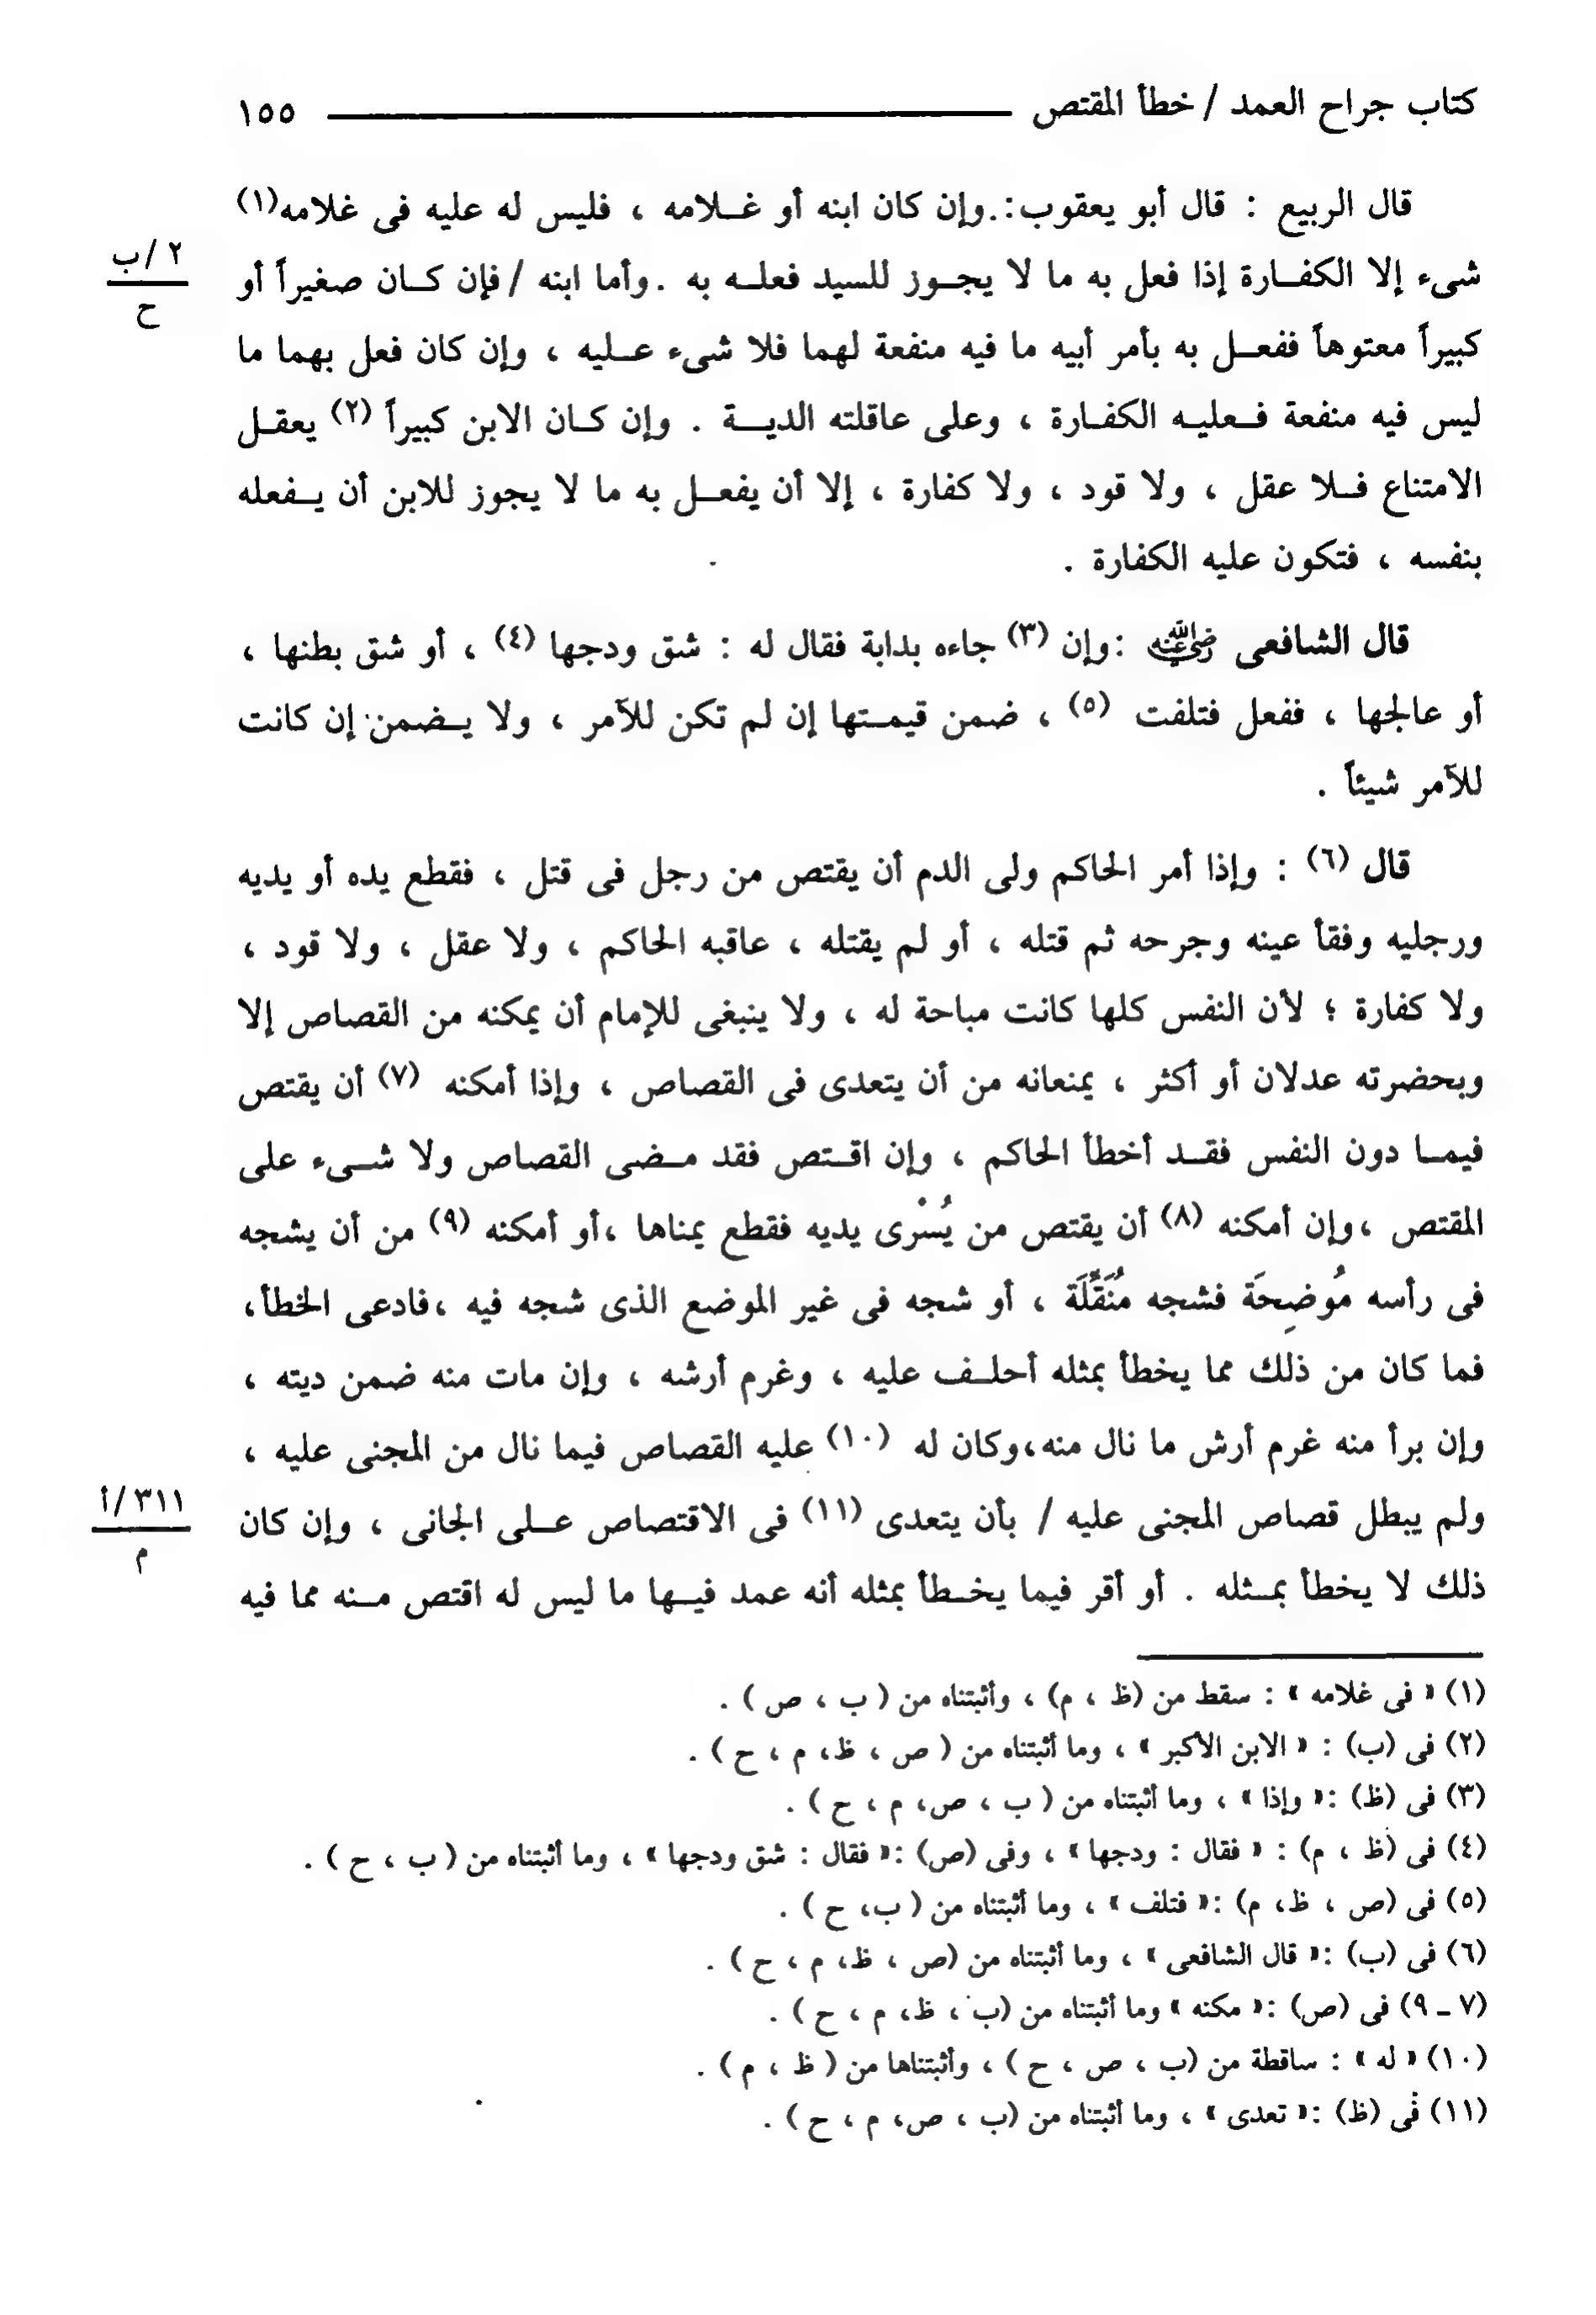 كتاب جراح العمد / خطأ المقتص ١٥٥
قال الربيع : قال أبو يعقوب: وإن كان ابنه أو غلامه ، فليس له عليه فى غلامه(١)
شىء إلا الكفارة إذا فعل به ما لا يجوز للسيد فعله به . وأما ابنه / فإن كان صغيراً أو
٢/ب
ح
كبيراً معتوهاً ففعل به بأمر أبيه ما فيه منفعة لهما فلا شىء عليه ، وإن كان فعل بهما ما
ليس فيه منفعة فعليه الكفارة ، وعلى عاقلته الدية . وإن كان الابن كبيراً (٢) يعقل
الامتناع فلا عقل ، ولا قود ، ولا كفارة ، إلا أن يفعل به ما لا يجوز للابن أن يفعله
بنفسه ، فتكون عليه الكفارة .
قال الشافعى رضي الله عنه : وإن (٣) جاءه بدابة فقال له : شق ودجها (٤) ، أو شق بطنها ،
أو عالجها ، ففعل فتلفت (٥) ، ضمن قيمتها إن لم تكن للآمر ، ولا يضمن إن كانت
للآمر شيئاً .
قال (٦) : وإذا أمر الحاكم ولى الدم أن يقتص من رجل فى قتل ، فقطع يده أو يديه
ورجليه وفقأ عينه وجرحه ثم قتله ، أو لم يقتله ، عاقبه الحاكم ، ولا عقل ، ولا قود ،
ولا كفارة ؛ لأن النفس كلها كانت مباحة له ، ولا ينبغى للإمام أن يمكنه من القصاص إلا
وبحضرته عدلان أو أكثر ، يمنعانه من أن يتعدى فى القصاص ، وإذا أمكنه (٧) أن يقتص
فيما دون النفس فقد أخطأ الحاكم ، وإن اقتص فقد مضى القصاص ولا شىء على
المقتص ، وإن أمكنه (٨) أن يقتص من يُسْرى يديه فقطع يمناها ، أو أمكنه (٩) من أن يشجه
فى رأسه مُوضِحَة فشجه مُنَقِّلَة ، أو شجه فى غير الموضع الذى شجه فيه ، فادعى الخطأ،
فما كان من ذلك مما يخطأ بمثله أحلف عليه ، وغرم أرشه ، وإن مات منه ضمن ديته ،
وإن برأ منه غرم أرش ما نال منه، وكان له (١٠) عليه القصاص فيما نال من المجنى عليه ،
ولم يبطل قصاص المجنى عليه / بأن يتعدى (١١) فى الاقتصاص على الجانى ، وإن كان
٣١١/أ
م
ذلك لا يخطأ بمثله . أو أقر فيما يخطأ بمثله أنه عمد فيها ما ليس له اقتص منه مما فيه
(١) « فى غلامه » : سقط من (ظ ، م) ، وأثبتناه من ( ب ، ص ) .
(٢) فى (ب) : « الابن الأكبر » ، وما أثبتناه من ( ص ، ظ، م ، ح ) .
(٣) فى (ظ) :« وإذا » ، وما أثبتناه من ( ب ، ص، م ، ح ) .
(٤) فى (ظ ، م) : « فقال : ودجها » ، وفى (ص) :« فقال : شق ودجها » ، وما أثبتناه من ( ب ، ح ) .
(٥) فى (ص ، ظ، م) :« فتلف » ، وما أثبتناه من ( ب، ح ) .
(٦) فى (ب) :« قال الشافعى » ، وما أثبتناه من (ص ، ظ، م ، ح ) .
(٧ ـ ٩) فى (ص) :« مكنه » وما أثبتناه من (ب ، ظ، م ، ح ) .
(١٠) « له » : ساقطة من (ب ، ص ، ح ) ، وأثبتناها من ( ظ ، م ) .
(١١) فى (ظ) :« تعدى » ، وما أثبتناه من (ب ، ص، م ، ح ) .